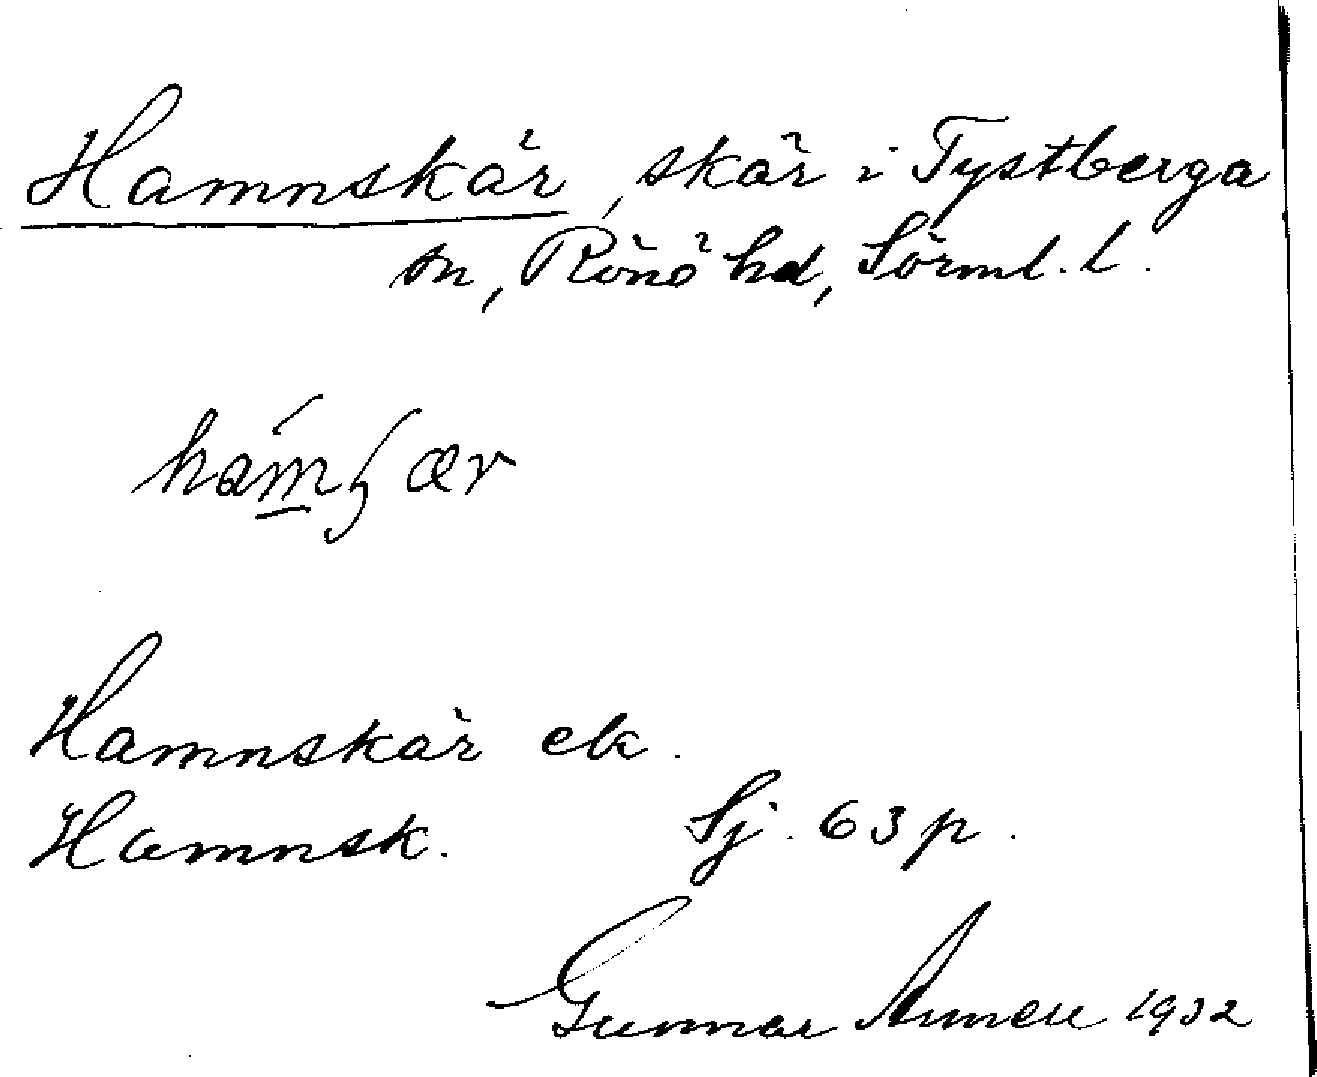 Hamnskär, skär i Tystberga
sn, Rönö hd, Sörml. l.
Hamnskär ek.
Hamnsk. Sj. 63 p.
Gunnar 1932